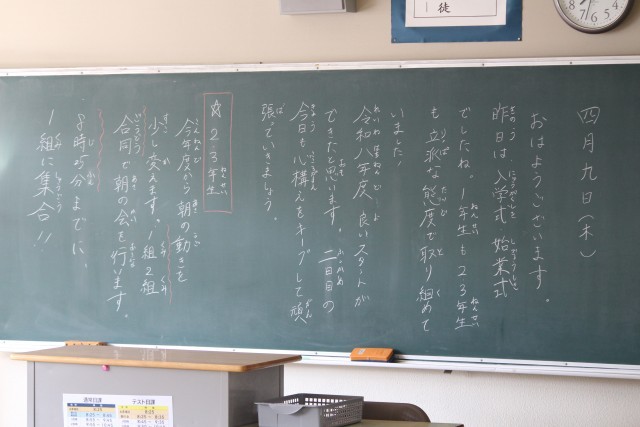 四月九日（木）
おはようございます。
昨日は、入学式、始業式
でしたね。１年生も２３年生
も立派な態度で取り組めて
いました！
令和八年度、良いスタートが
できたと思います。二日目の
今日も心構えをキープして頑
張っていきましょう。
☆２３年生
今年度から朝の動きを
少し変えます。１組２組
合同で朝の会を行います。
８時25分までに、
１組に集合!!
徒
通常日課
テスト日課